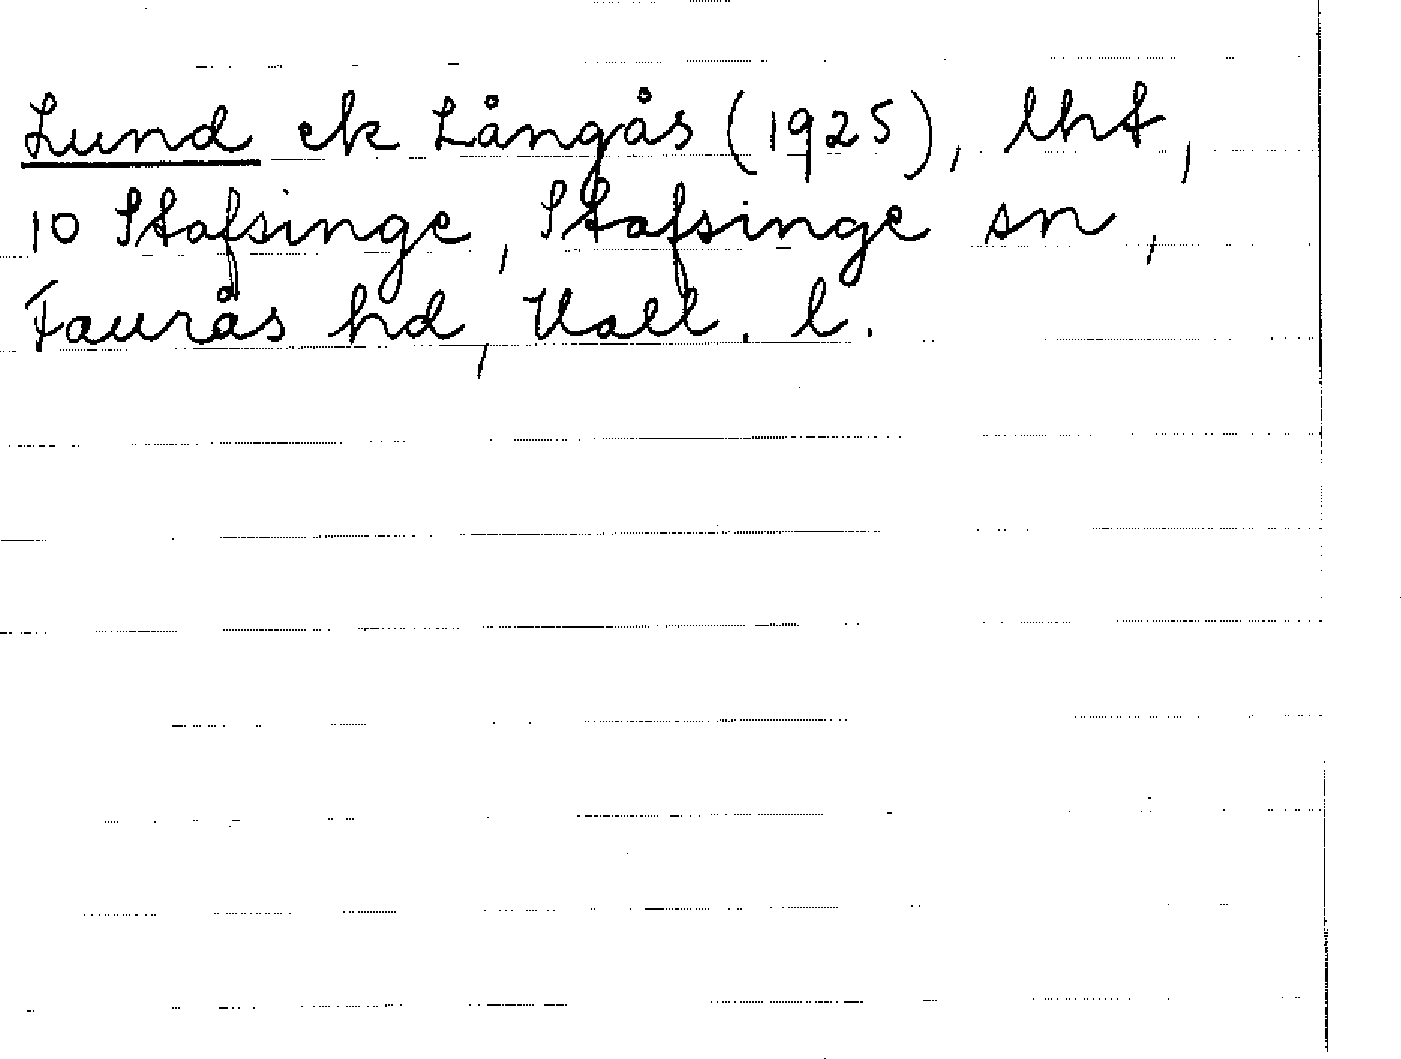 Lund ek Långås (1925), lht,
10 Stafsinge, Stafsinge sn,
Faurås hd, Hall. l.